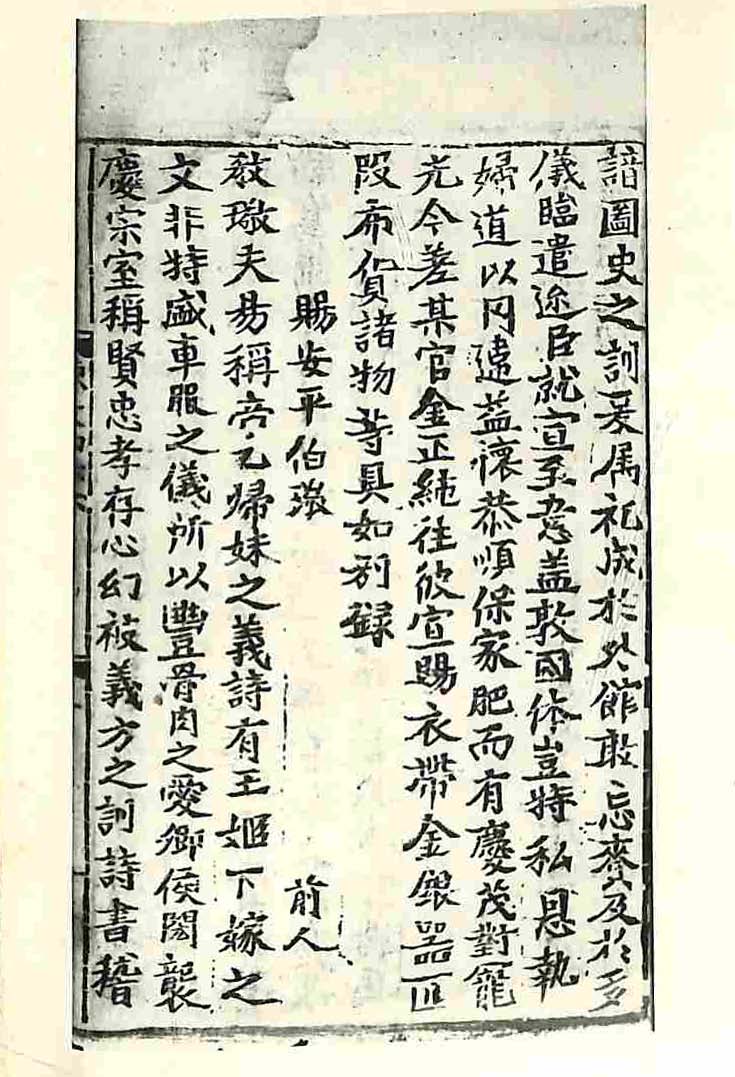 諳圖史之訓爰属礼成於外館敢忘賚及於多
儀臨遣近臣就宣至意盖敦國体豈特私恩執
婦道以罔違益懷恭順保家肥而有慶茂對寵
光今差某官金正純往彼宣賜衣帶金銀器匹
段布貨諸物等具如別録
賜安平伯璥 前人
敎璥夫易稱帝乙歸妹之義詩有王姬下嫁之
文非特盛車服之儀所以豐骨肉之愛卿侯閥襲
慶宗室稱賢忠孝存心幼被義方之訓詩書稽